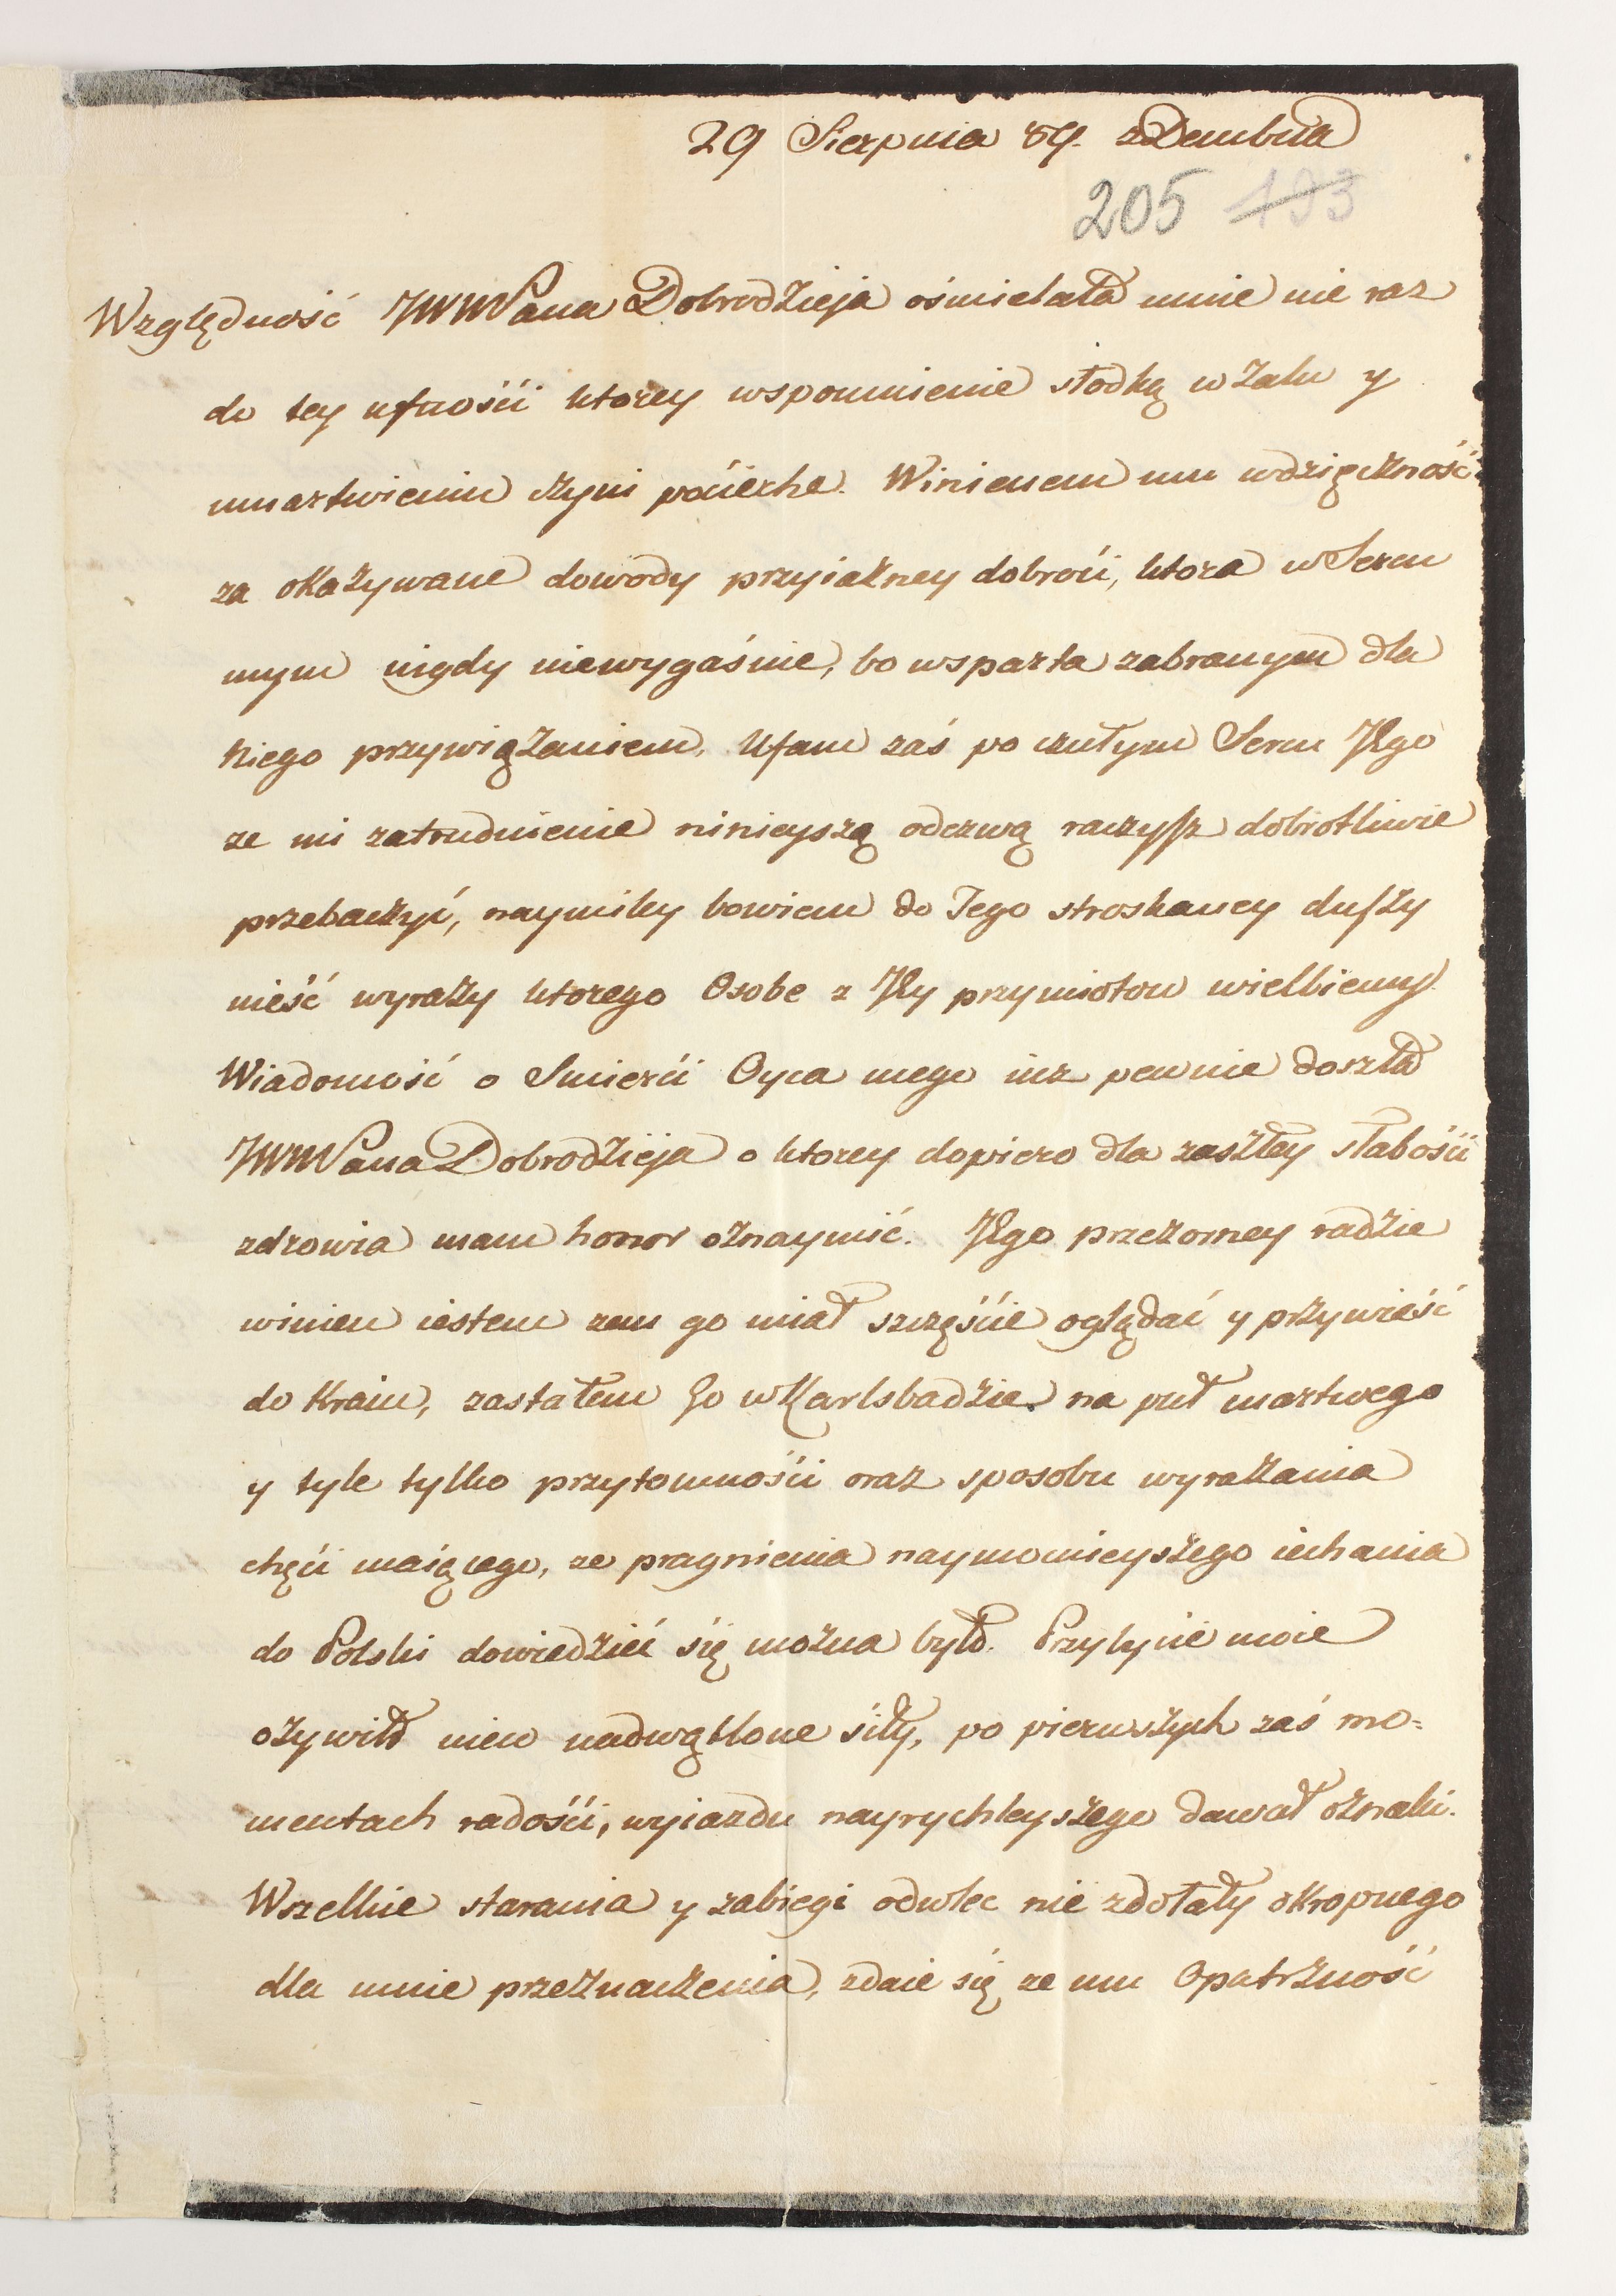 29 Sierpnia 89. z Dembna
205 193
Względność JWWPana Dobrodzieja ośmielała mnie nie raz
do tey ufności ktorey wspomnienie słodką w żalu y
umartwieniu czyni pociechę. Winienem mu wdzięczność
za okazywane dowody przyiazney dobroci, ktora w Sercu
mym nigdy niewygaśnie, bo wsparta zabranym dla
Niego przywiązaniem. Ufam zaś po czułym Sercu JEgo
ze mi zatrudnienie ninieyszą odezwą raczysz dobrotliwie
przebaczyć, naymiley bowiem do Tego stroskaney duszy
nieść wyrazy ktorego Osobe z JEy przymiotow wielbiemy.
Wiadomość o Smierci Oyca mego iuz pewnie doszła
JWWPana Dobrodzieja o ktorey dopiero dla zaszłey słabości
zdrowia mam honor oznaymić. JEgo przezorney radzie
winien iestem zem go miał szczęście oglądać y przywieść
do Kraiu, zastałem Go w Karlsbadzie na puł martwego
y tyle tylko przytomności oraz sposobu wyrażania
chęci maiącego, ze pragnienia naymocnieyszego iechania
do Polski dowiedzieć się można było. Przybycie moie
ożywiło nieco nadwątlone siły, po pierwszych zaś mo=
mentach radości, wyiazdu nayrychleyszego dawał oznaki.
Wszelkie starania y zabiegi odwlec nie zdołały okropnego
dla mnie przeznaczenia, zdaie się ze mu Opatrzność